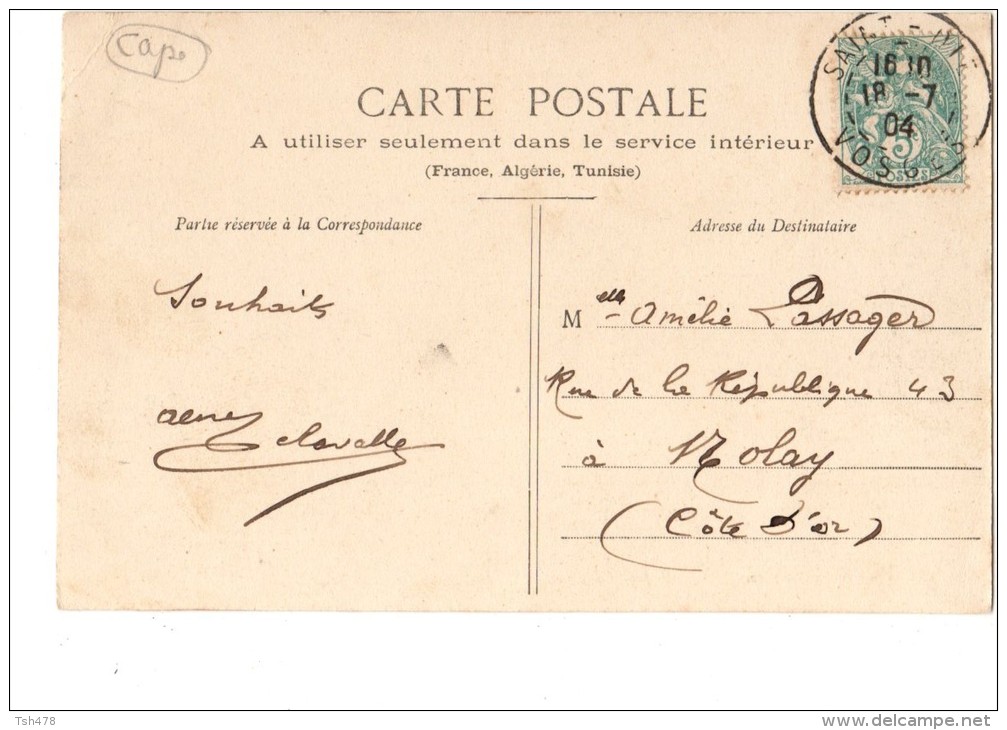 Cap.
CARTE POSTALE
A utiliser seulement dans le service intérieur
(France, Algérie, Tunisie)
16 10
18 -7
04
VOSGES
5
Partie réservée à la Correspondance
Souhaits
Adresse du Destinataire
Melle Amélie Passager
Rue de la République 43
à Nolay
(Côte D'or)
Tsh478
www.delcampe.net